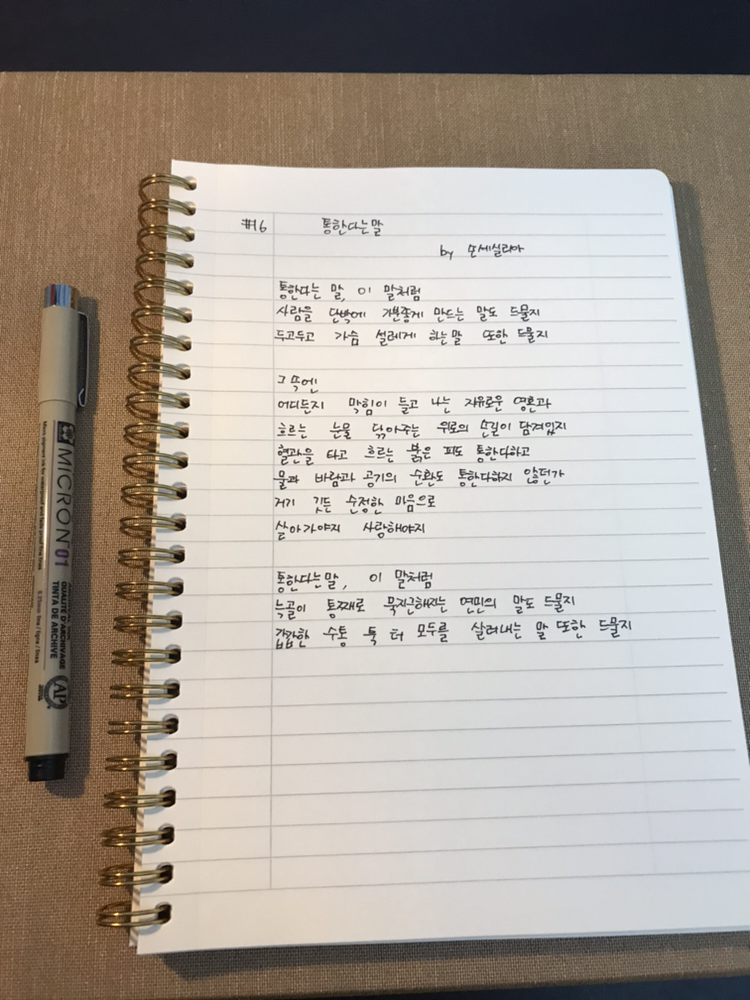 #16 통한다는 말
by 손세실리아
통한다는 말, 이 말처럼
사람을 단박에 기분좋게 만드는 말도 드물지
두고두고 가슴 설레게 하는 말 또한 드물지
그 속엔
어디든지 막힘이 들고 나는 자유로운 영혼과
흐르는 눈물 닦아주는 위로의 손길이 담겨있지
혈관을 타고 흐르는 붉은 피도 통한다하고
물과 바람과 공기의 순환도 통한다하지 않던가
거기 깃든 순정한 마음으로
살아가야지 사랑해야지
통한다는 말, 이 말처럼
늑골이 통째로 묵지근해지는 연민의 말도 드물지
갑갑한 숨통 툭 터 모두를 살려내는 말 또한 드물지
MICRON 01
QUALITÉ D'ARCHIVAGE
TINTA DE ARCHIVE
AP